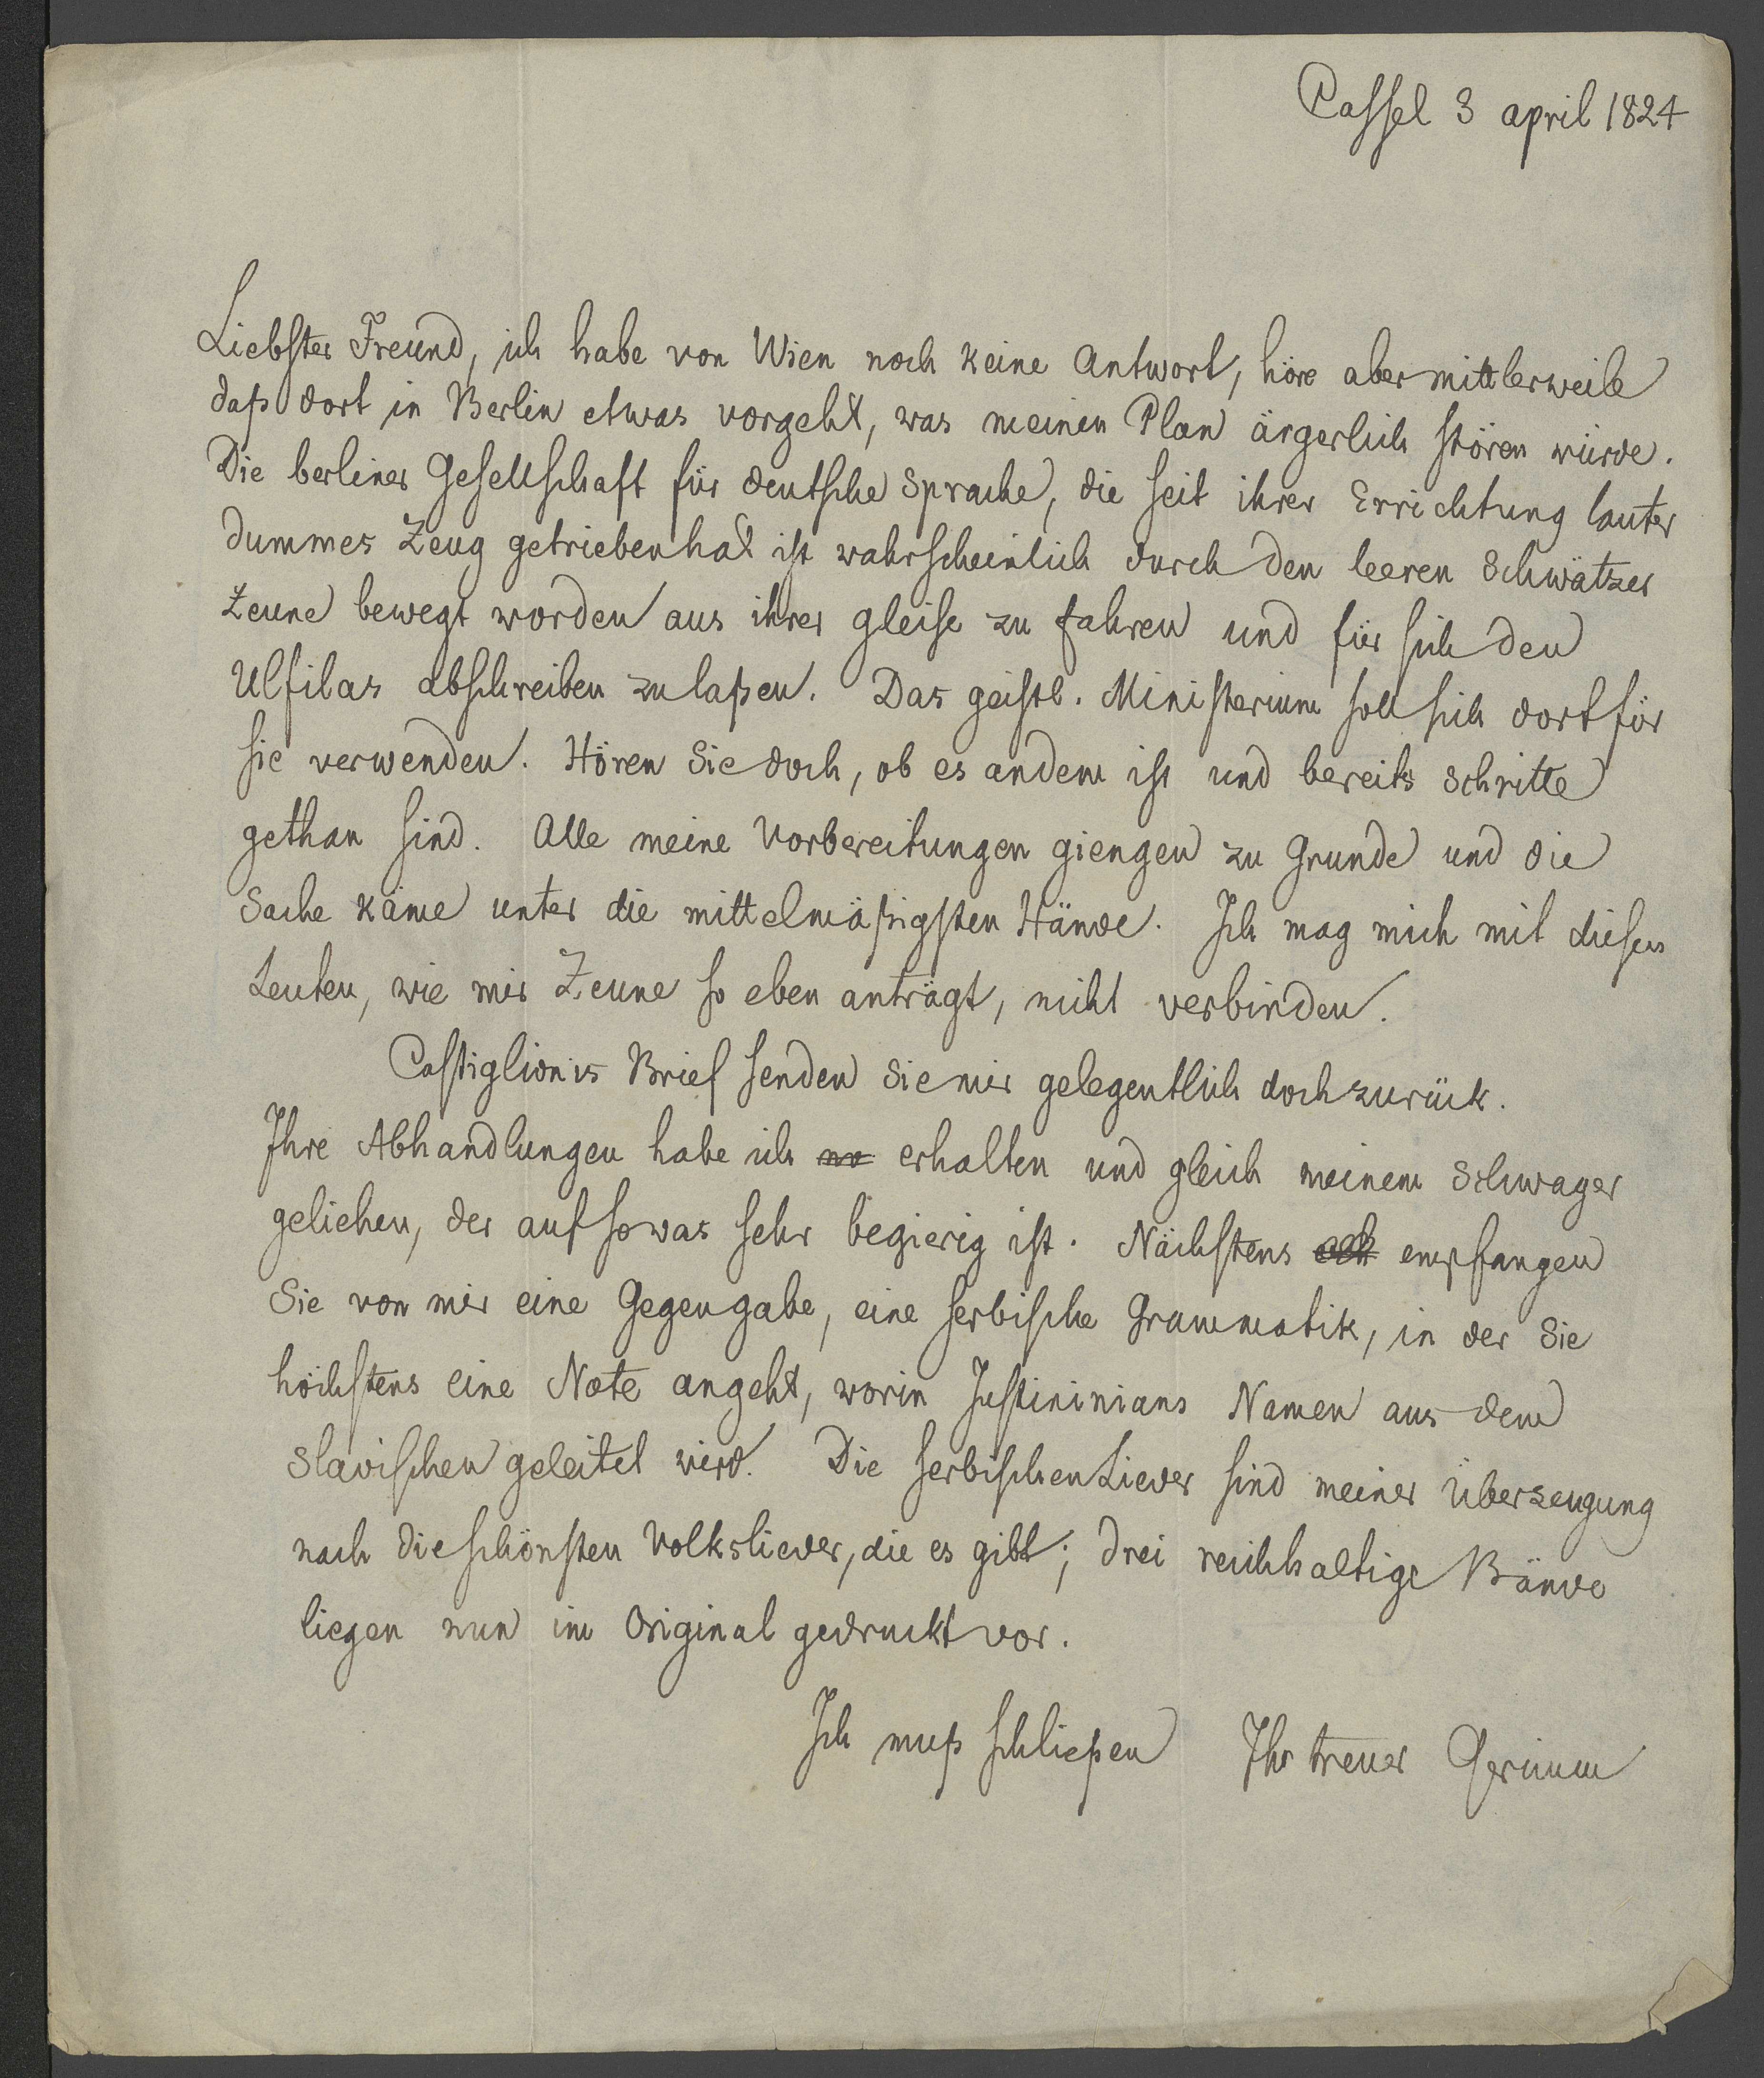 Cassel 3 april 1824
Liebster Freund, ich habe von Wien noch keine Antwort, höre aber mittlerweile
daß dort in Berlin etwas vorgeht, was meinen Plan ärgerlich stören würde.
Die berliner Gesellschaft für deutsche Sprache, die seit ihrer Errichtung lauter
dummes Zeug getrieben hat ist wahrscheinlich durch den leeren Schwätzer
Zeune bewegt worden aus ihrer gleise zu fahren und für sich den
Ulfilas abschreiben zu laßen. Das geistl. Ministerium soll sich dort für
sie verwenden. Hören Sie doch, ob es andem ist und bereits Schritte
gethan sind. Alle meine Vorbereitungen giengen zu Grunde und die
Sache käme unter die mittelmäßigsten Hände. Ich mag mich mit diesen
Leuten, wie mir Zeune so eben anträgt, nicht verbinden.
Castiglionis Brief senden Sie mir gelegentlich doch zurück.
Ihre Abhandlungen habe ich erhalten und gleich meinem Schwager
geliehen, der auf so was sehr begierig ist. Nächstens empfangen
Sie von mir eine Gegengabe, eine serbische Grammatik, in der Sie
höchstens eine Note angeht, worin Justininians Namen aus dem
Slavischen geleitet wird. Die serbischen Lieder sind meiner Überzeugung
nach die schönsten Volkslieder, die es gibt; drei reichhaltige Bände
liegen nun im Original gedruckt vor.
Ich muß schließen Ihr treuer Grimm